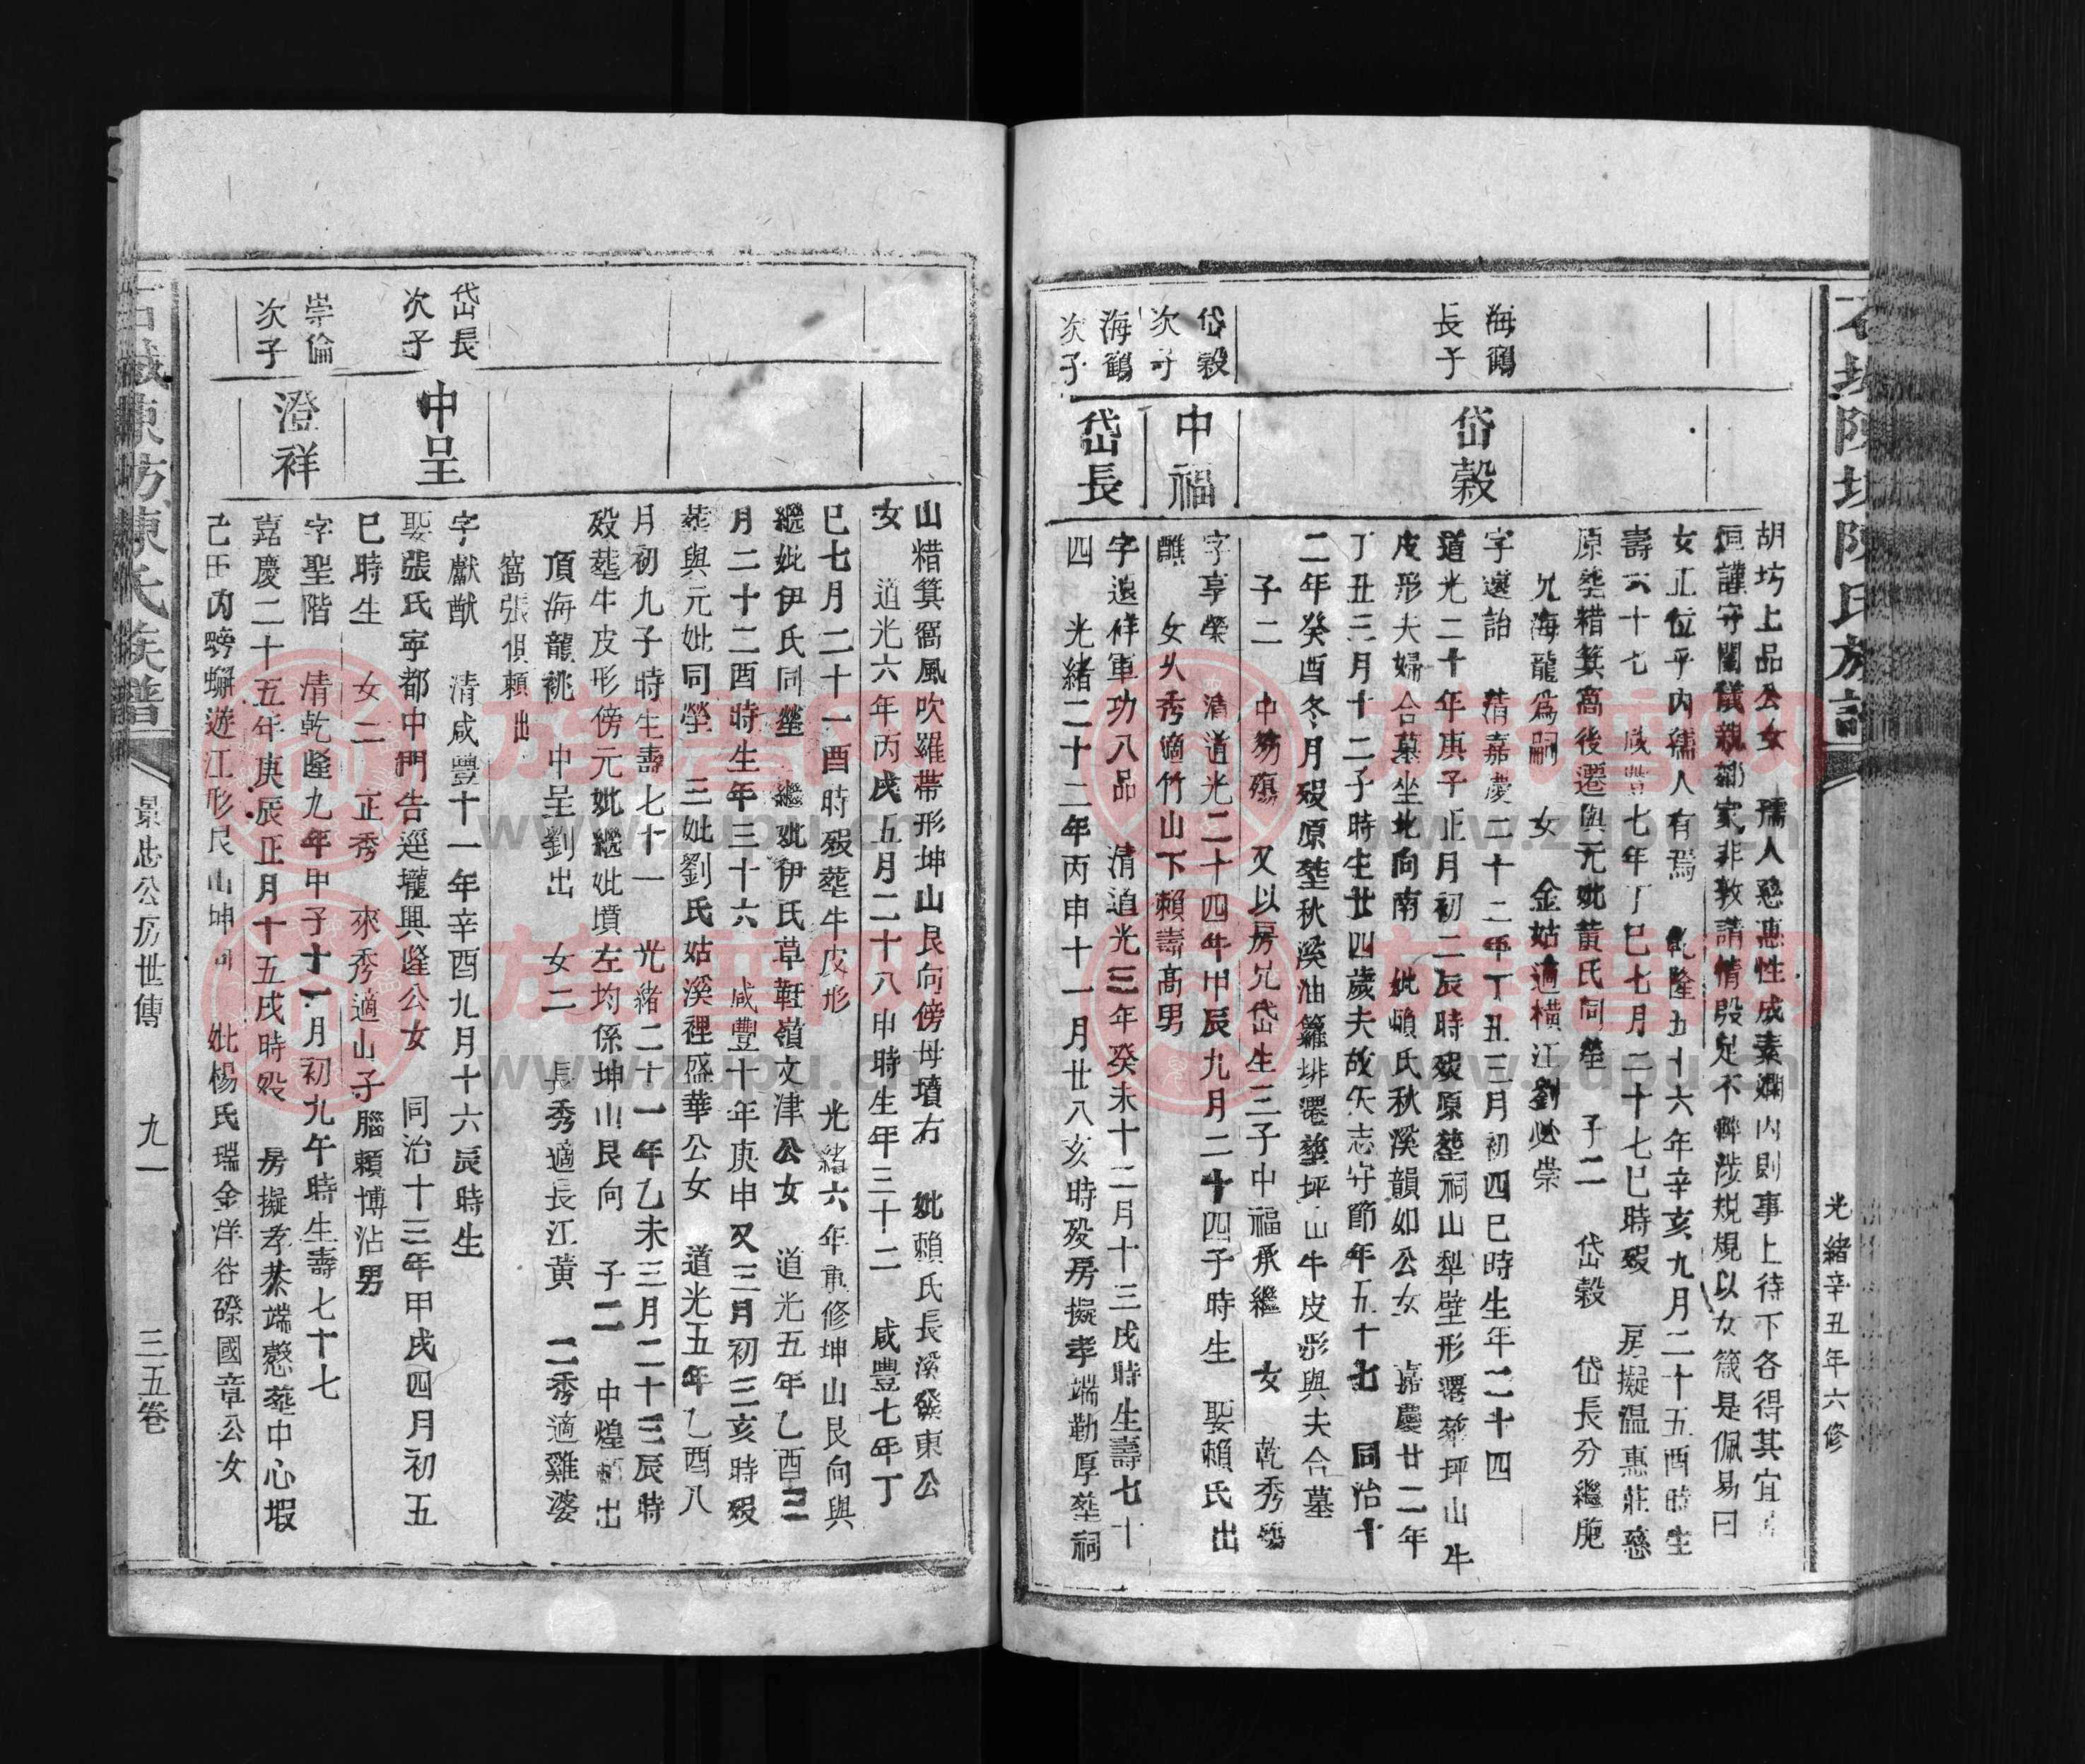 陳氏族
光緒辛丑年六修
胡坊上品公女 孺人慈惠性成素嫻內則事上待下各得其宜
恒謹守閨儀親鄰家非敦請情殷足不輕涉規規以女箴是佩易曰
女正位乎內孺人有焉 乾隆五十六年辛亥九月二十五酉時生
壽六十七 咸豐七年丁巳七月二十七巳時歿 房擬溫惠莊慈
原塟糦箕窩後遷與元妣黃氏同塋 子二 岱穀 岱長分繼胞
兄海龍為嗣 女 金姑適橫江劉必崇
海鶴
長子
岱穀
字遠詒 清嘉慶二十二年丁丑三月初四巳時生年二十四
道光二十年庚子正月初二辰時歿原塟祠山犁壁形遷塟坪山牛
皮形夫婦合墓坐北向南 妣賴氏秋溪韻如公女 嘉慶廿二年
丁丑三月十二子時生廿四歲夫故矢志守節年五十七 同治十
二年癸酉冬月歿原塟秋溪油籮排遷塟坪山牛皮形與夫合墓
子二 中易殤 又以房兄岱生三子中福承繼 女 乾秀殤
岱穀
次子
中福
字享榮 清道光二十四年甲辰九月二十四子時生 娶賴氏出
醮 女久秀適竹山下賴壽高男
海鶴
次子
岱長
字遠祥軍功八品 清道光三年癸未十二月十三戌時生壽七十
四 光緒二十二年丙申十一月廿八亥時歿房擬孝端勤厚塟祠
山糦箕窩風吹羅帶形坤山艮向傍母墳右 妣賴氏長溪簇東公
女 道光六年丙戌五月二十八申時生年三十二 咸豐七年丁
巳七月二十一酉時歿塟牛皮形 光緒六年重修坤山艮向與
繼妣伊氏同塋 繼妣伊氏草鞋嶺文津公女 道光五年乙酉三
月二十二酉時生年三十六 咸豐十年庚申又三月初三亥時歿
塟與元妣同塋 三妣劉氏姑溪裡盛華公女 道光五年乙酉八
月初九子時生壽七十一 光緒二十一年乙未三月二十三辰時
歿塟牛皮形傍元妣繼妣墳左均係坤山艮向 子二 中煌賴出
頂海龍祧 中呈劉出 女二 長秀適長江黃 二秀適雞婆
窩張俱賴出
岱長
次子
中呈
字獻猷 清咸豐十一年辛酉九月十六辰時生
娶張氏寧都中門告逕壠興隆公女 同治十三年甲戌四月初五
巳時生 女二 正秀 來秀適山子腦賴博沾男
崇倫
次子
澄祥
字聖階 清乾隆九年甲子十一月初九午時生壽七十七
嘉慶二十五年庚辰正月十五戌時歿 房擬孝恭端慤塟中心塅
己田內螃蠏遊江形艮山坤向 妣楊氏瑞金洋谷磜國章公女
石城陳坊陳氏族譜
景忠公房世傳
九一
三五卷
族譜网
www.zupu.cn
族譜网
www.zupu.cn
族譜网
www.zupu.cn
族譜网
www.zupu.cn